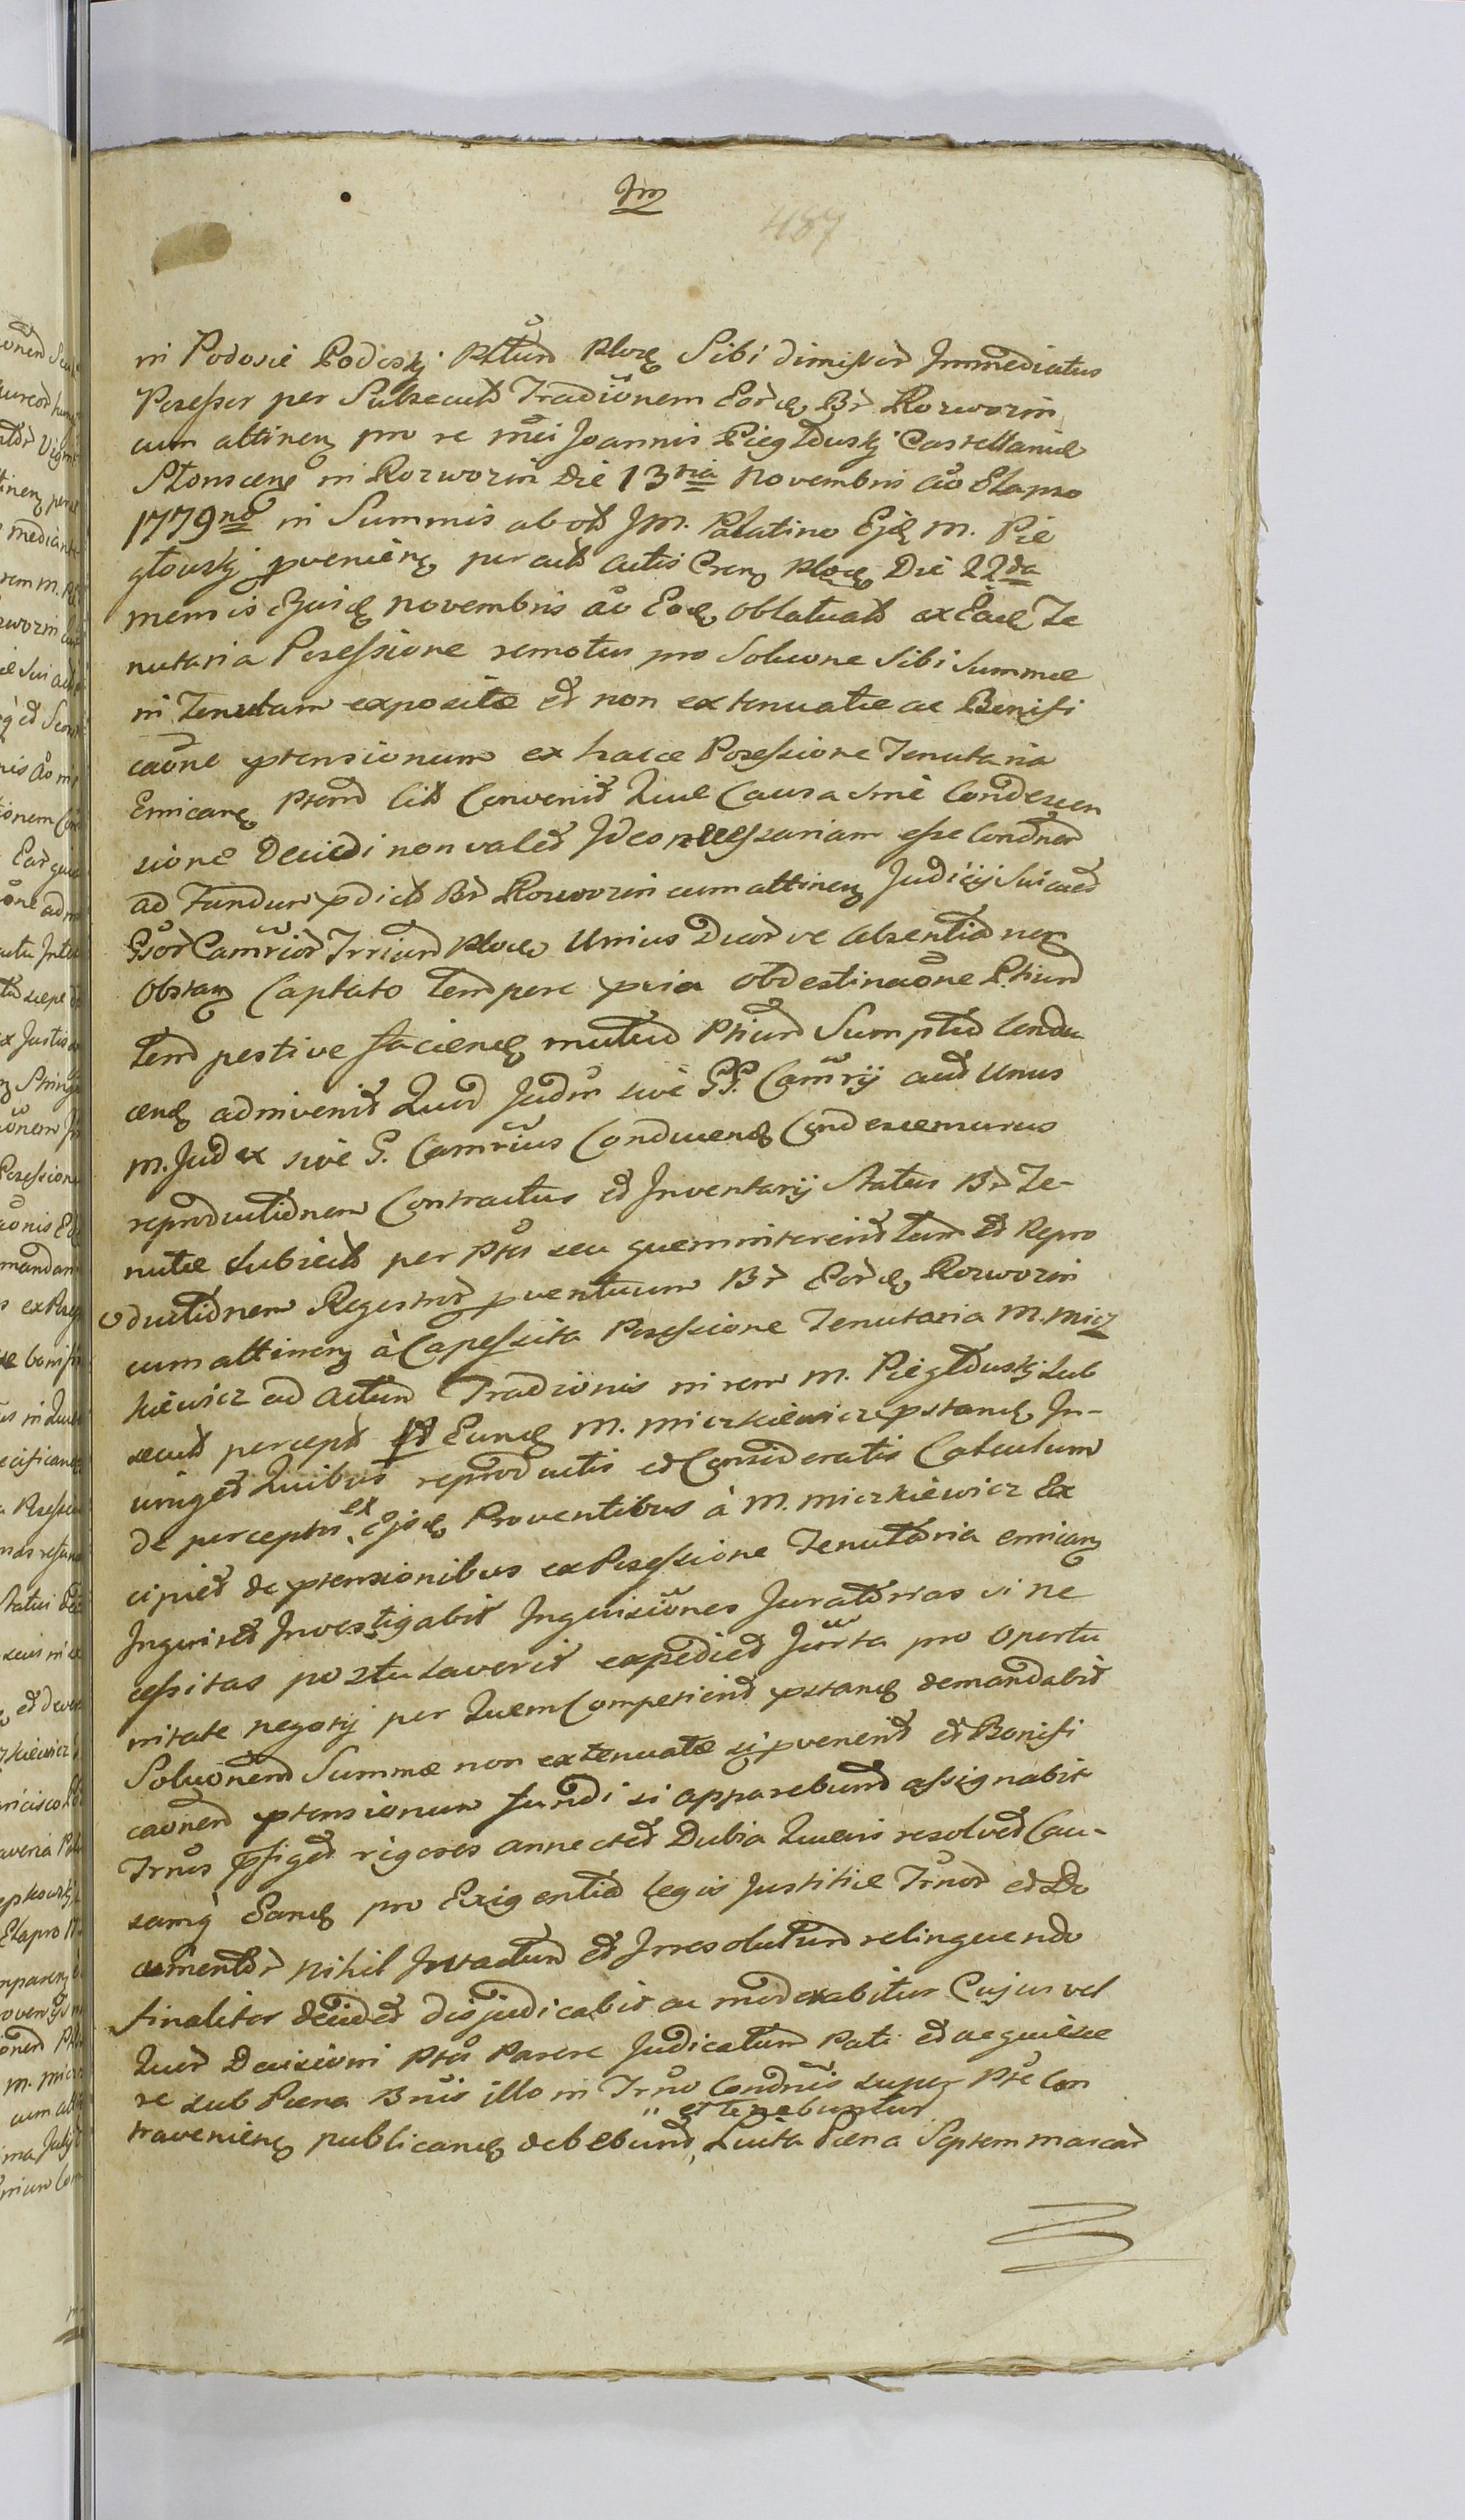 Im
487
in Podosie Podoskj Pttum Ploce Sibi dimissor Immediatus
Possessor per Subsecut Tradiõnem Eorde Br Rozworzin
cum attinen pro re mei Joannis Piegłduskj Castellanide
Słonscens in Rozworzin Die 13tia Novembris aõ Elapso
1779no in Summis ab ott JM. Palatino Ejde M. Pie
głouskj pveniens per act actis Cren Ploce Die 22da
mensis Ejusde Novembris aõ Eode oblatuatt ex Eade Te
nutaria Possessione remotus pro Solucone Sibi Summae
in Tenutam expositae et non extenuatae ac Bonifi
caõne ptensionum ex hacce Possessione Tenutaria
Emican ptend citt Convenit Quae Causa sine Condescen
sione Decidi non valet Ideo necessariam esse Condnem
ad Fundum pdictt Br Rozworzin cum attinen Judicij Sui aut
Gsor Camrior Trrium Ploce Unius Duor ve Absentia non
Obstan Captato tempore pvia obdestinaõne Ptium
tempestive faciend mutuo Ptium Sumptu Condu
cend adinvenit Quod Judm sive GG. Camrij aut Unus
M. Judex sive G. Camrius Conducend Condescensurus
reproductionem Contractus et Inventarij Status Br Te-
nutae Subsecutt per Ptes seu quem intererit tum et Repro
ductionem Regestror pventuum Br Eorde Rozworzin
cum attinen à Capessita Possessione Tenutaria M. Micz
kiewicz ad actum Tradionis in rem M. Piegłduskj Sub
secutt percept per Eunde M. Miczkiewicz pstand In-
iunget Quibus reproductis et Consideratis Calculum
de perceptis ex Ejsde Proventibus à M. Miczkiewicz Ex
cipiet de ptensionibus ex Possessione Tenutaria emican
Inquiret Investigabit Inquisiões Juratorias si ne
cessitas postulaverit expediet Jurta pro opertu
nitate negotij per Quem Competierit pstand demandabit
Soluõnem Summae non extenuatae si pvenerit et Bonifi
caõnem ptensionum fundi si apparebunt assignabit
Trnos pfiget rigores annectet Dubia Quaevis resolvet Cau-
samq Eande pro Exigentia legis Justitiae Trnor et Do
cumentor nihil Intactum et Irresolutum relinquendo
finaliter decidet disjudicabit ac moderabitur Cujus vel
Quor Decisioni Ptes Parere Judicatum Pati et acquiesce
re sub Poena Bnis illo in Trno Condnis super Pte Con
et tenebuntur
travenien publicand debebunt, Luita Poena Septem marcar